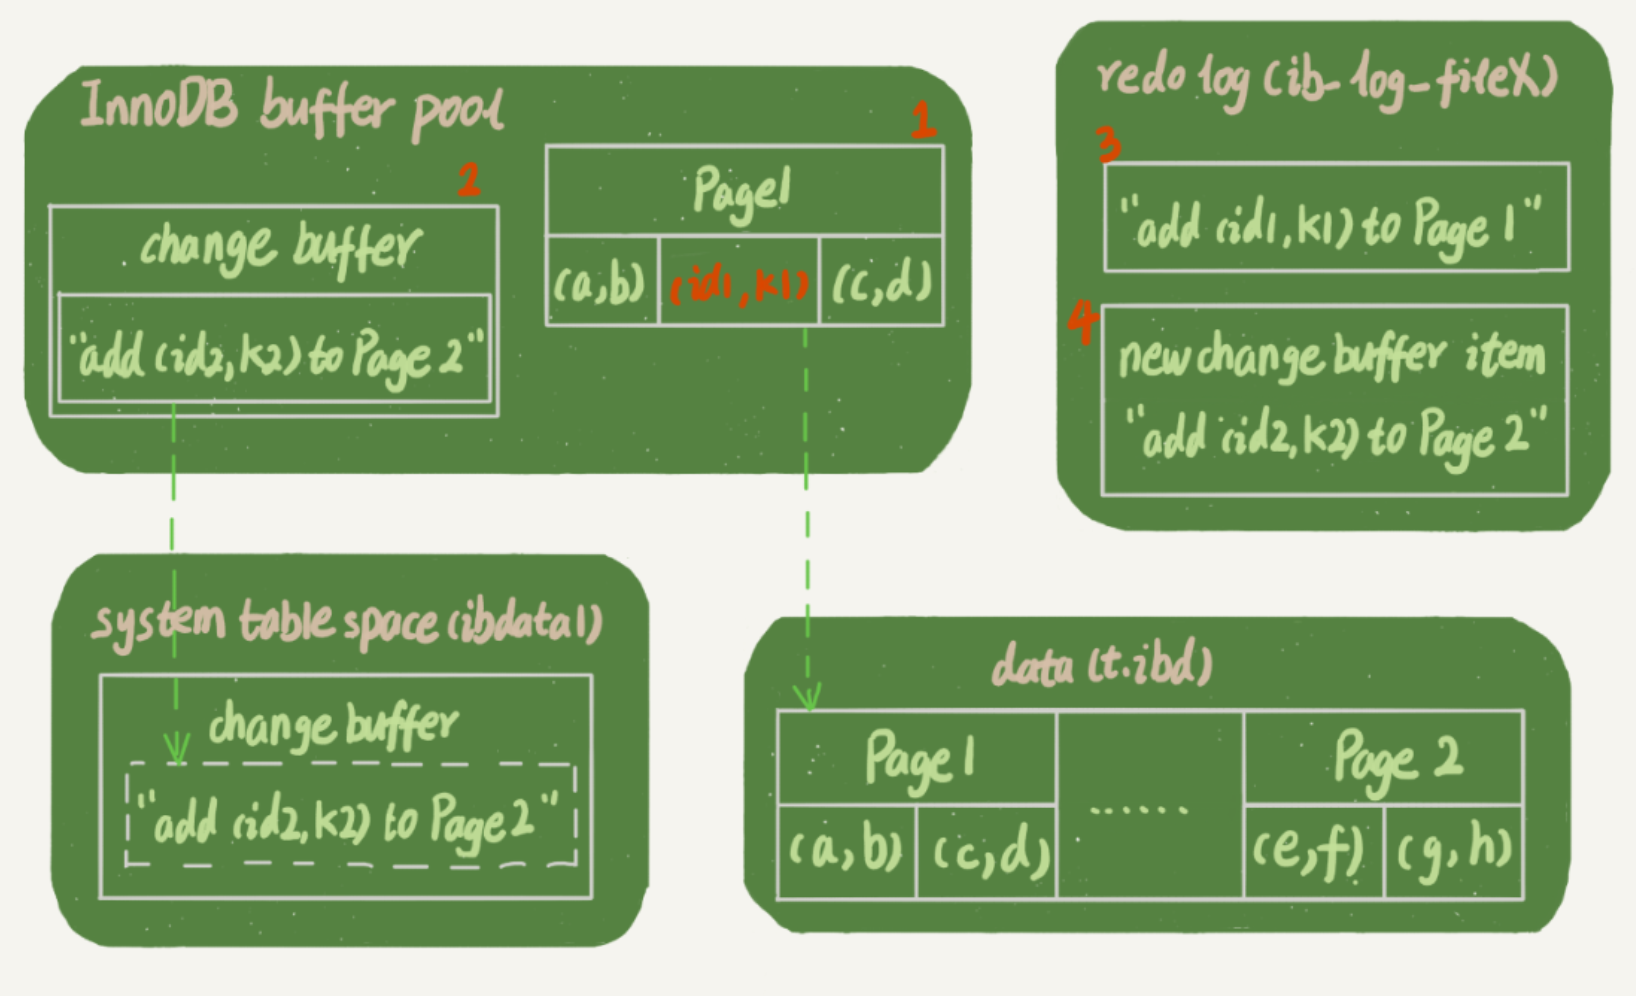 InnoDB buffer pool
1
2
Page1
change buffer
(a,b) (id1,k1) (c,d)
"add (id2,k2) to Page 2"
redo log (ib_log_fileX)
3
"add (id1,k1) to Page 1"
4
new change buffer item
"add (id2,k2) to Page 2"
system table space (ibdata1)
change buffer
"add (id2,k2) to Page2"
data (t.ibd)
Page 1 ...... Page 2
(a,b) (c,d) (e,f) (g,h)